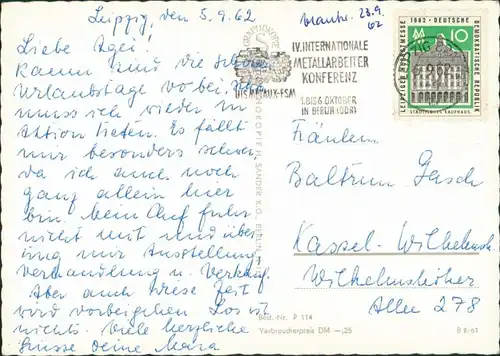 Leipzig, den 5.9.62
Liebe Agei!
Kaum sind die schönen
Urlaubstage vorbei,
muss ich wieder in
Aktion treten. Es fällt
mir besonders schwer,
da ich auch noch
ganz allein hier
bin. Mein Chef fuhr
nicht mit und über
mir Ausstellung
Verhandlung u. Verkauf.
Aber auch diese Zeit
wird vorbeigehen
nichts. Viele herzliche
Grüsse Deine Mara
23.9.
62
IV. INTERNATIONALE
METALLARBEITER
KONFERENZ
UIS METAUX-FSM
1. BIS 6. OKTOBER
IN BERLIN (DDR)
LEIPZIGER HERBSTMESSE 1962 · DEUTSCHE
DEMOKRATISCHE REPUBLIK
M 10
STÄDTISCHES KAUFHAUS
Fräulein
Kassel-Wilhelmsh.
Wilhelmshöher
Allee 278
H. SANDER K.G., BERLIN
Best.-Nr. P 114
Verbraucherpreis DM -,25